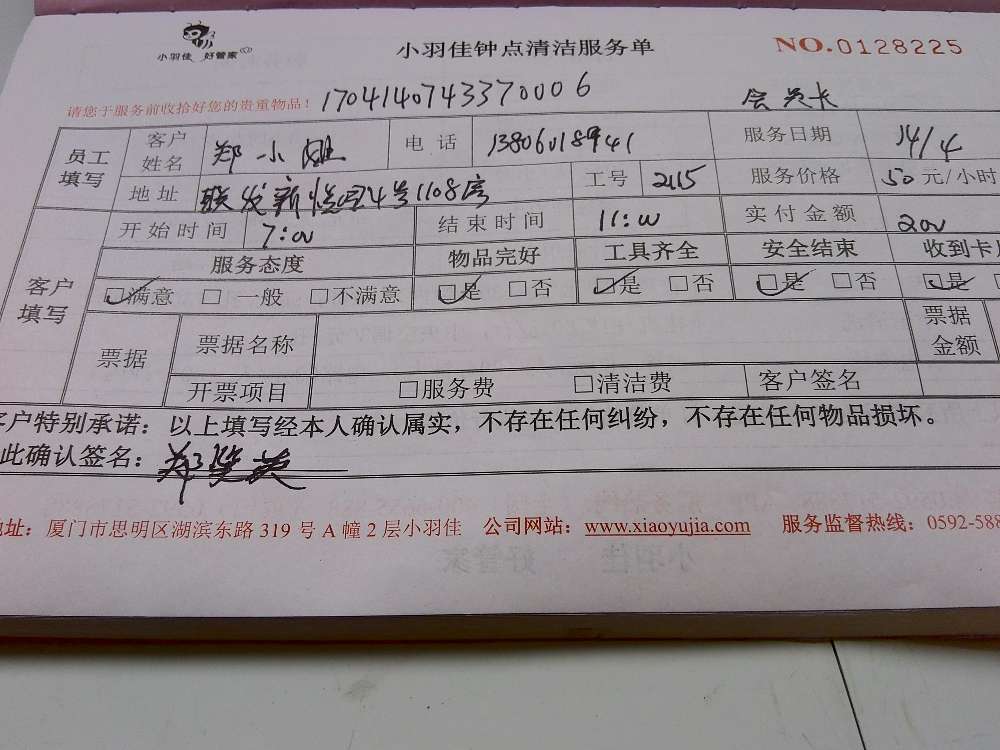 小羽佳 好管家
小羽佳钟点清洁服务单
NO.0128225
请您于服务前收拾好您的贵重物品! 1704140743370006 会员卡
员工填写 客户姓名 郑小姐 电话 13806018941 服务日期 14/4
地址 联发新悦园4号1108房 工号 2115 服务价格 50元/小时
客户填写 开始时间 7:00 结束时间 11:00 实付金额 200
服务态度 物品完好 工具齐全 安全结束 收到卡
☑满意 □一般 □不满意 ☑是 □否 ☑是 □否 ☑是 □否 ☑是
票据 票据名称 票据金额
开票项目 □服务费 □清洁费 客户签名
客户特别承诺:以上填写经本人确认属实,不存在任何纠纷,不存在任何物品损坏。
此确认签名:
地址:厦门市思明区湖滨东路 319 号 A 幢 2 层小羽佳 公司网站:www.xiaoyujia.com 服务监督热线:0592-588